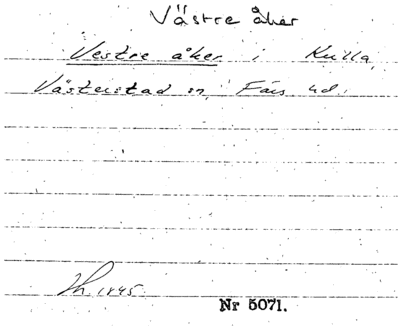 Västre åker
Vestre åker i Kulla,
Västerstad sn, Färs hd.
Th. 1845.
Nr 5071.